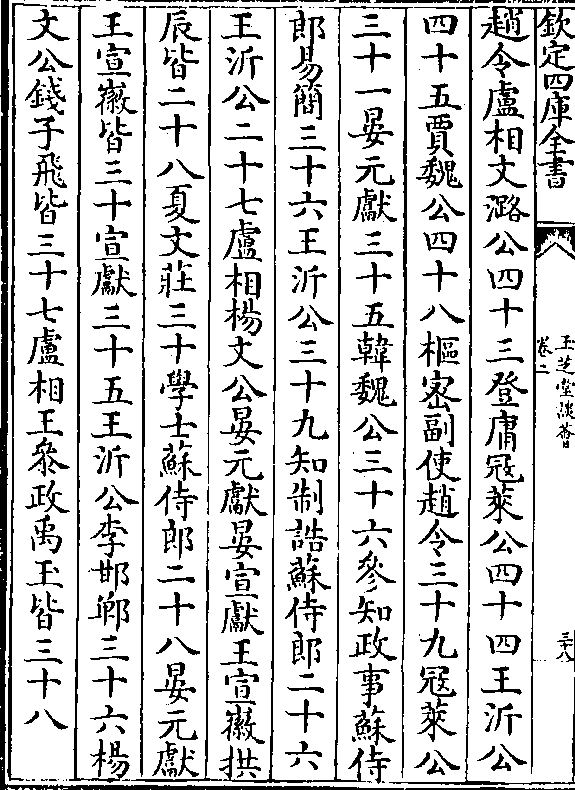 欽定四庫全書
玉芝堂談薈
卷二
三十八
趙令盧相文潞公四十三登庸冦萊公四十四王沂公
四十五賈魏公四十八樞宻副使趙令三十九冦萊公
三十一晏元獻三十五韓魏公三十六參知政事蘇侍
郎易簡三十六王沂公三十九知制誥蘇侍郎二十六
王沂公二十七盧相楊文公晏元獻晏宣獻王宣徽拱
辰皆二十八夏文莊三十學士蘇侍郎二十八晏元獻
王宣徽皆三十宣獻三十五王沂公李邯鄲三十六楊
文公錢子飛皆三十七盧相王叅政禹玉皆三十八